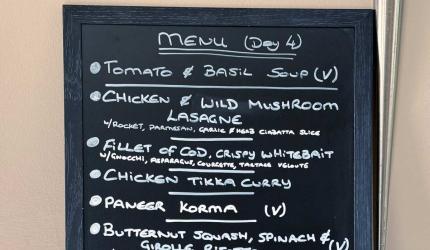 MENU (Day 4)
TOMATO & BASIL SOUP (V)
CHICKEN & WILD MUSHROOM
LASAGNE
W/ROCKET, PARMESAN, GARLIC & HERB CIABATTA SLICE
FILLET OF COD, CRISPY WHITEBAIT
W/GNOCCHI, ASPARAGUS, COURGETTE, TARTARE VELOUTÉ
CHICKEN TIKKA CURRY
PANEER KORMA (V)
BUTTERNUT SQUASH, SPINACH &
GIROLLE (V)